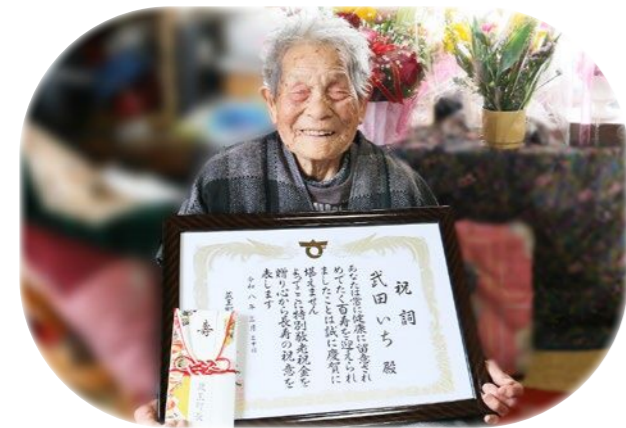 祝詞
武田いち殿
あなたは常に健康に留意され
めでたく百寿を迎えられ
ましたことは誠に慶賀に
堪えません
よってここに特別敬老祝金を
贈り心から長寿の祝意を
表します
令和八年三月三十日
寿
蔵王町長